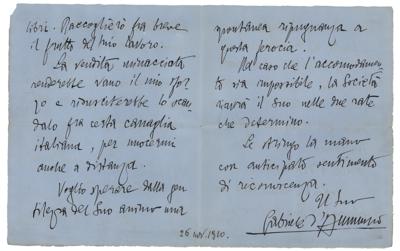 libri. Raccoglierò fra breve
il frutto del mio lavoro.
La vendita minacciata
renderebbe vano il mio sfor-
zo e susciterebbe lo scan-
dalo fra certa canaglia
italiana, per nuocermi
anche a distanza.
Voglio sperare dalla gen-
tilezza del Suo animo una
spontanea ripugnanza a
questa ferocia.
Nel caso che l'accomodamen-
to sia impossibile, la Società
avrà il Suo nelle due rate
che determino.
Le stringo la mano
con anticipato sentimento
di riconoscenza.
Il Suo
Gabriele d'Annunzio
26 nov. 1910.